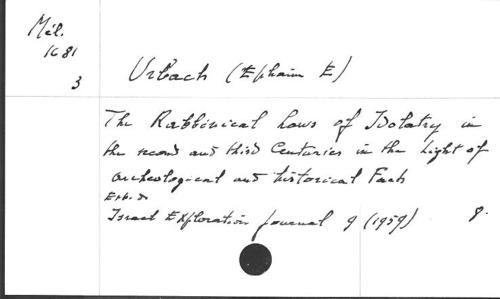 Mél.
1681
3
Urbach (Ephraim E)
The Rabbinical Laws of Idolatry in
the second and third Centuries in the Light of
archeological and historical Facts
Israel Exploration Journal 9 (1959) 8.